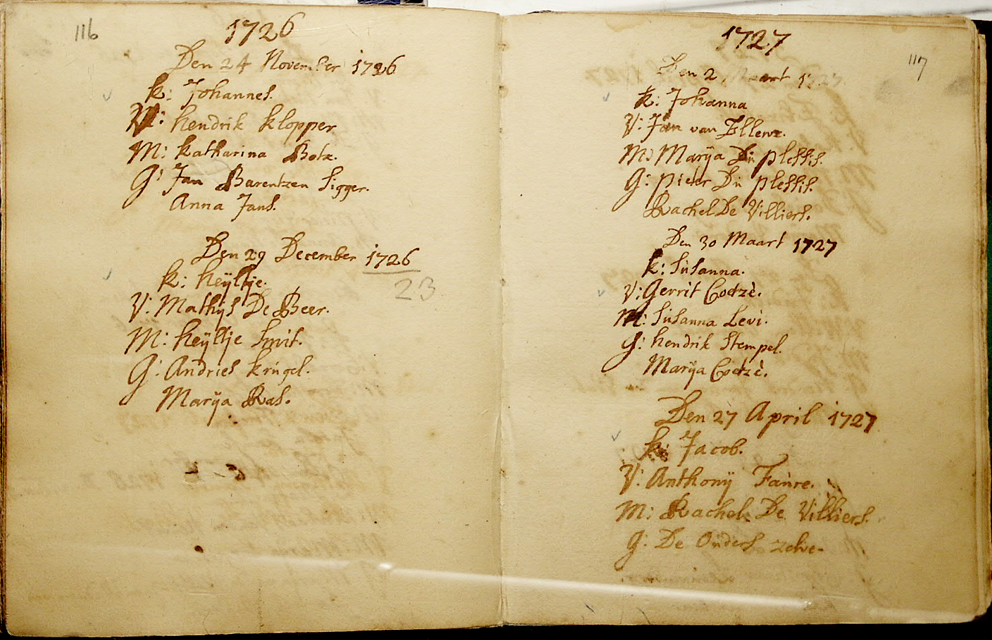 116
1726
Den 24 November 1726
k: Johannes.
V: hendrik klopper.
M: katharina Botz.
G: Jan Barentzen Sigger.
Anna Jans.
Den 29 December 1726
23
k: heÿltje.
V: Mathÿs De Beer.
M: heÿltje Smit.
G: Andries krugel.
Marÿa Ras.
117
1727
Den 2 Maart 1727
k: Johanna
V: Jan van Ellewe.
M: Marÿa Du plessis.
G: pieter Du plessis.
Rachel De Villiers.
Den 30 Maart 1727
k: Susanna.
V: Gerrit Coetzè.
M: Susanna Levi.
G: hendrik Stempel.
Marÿa Coetzè.
Den 27 April 1727
k: Jacob.
V: Anthonÿ Faure.
M: Rachel De Villiers.
G: De Ouders zelve.